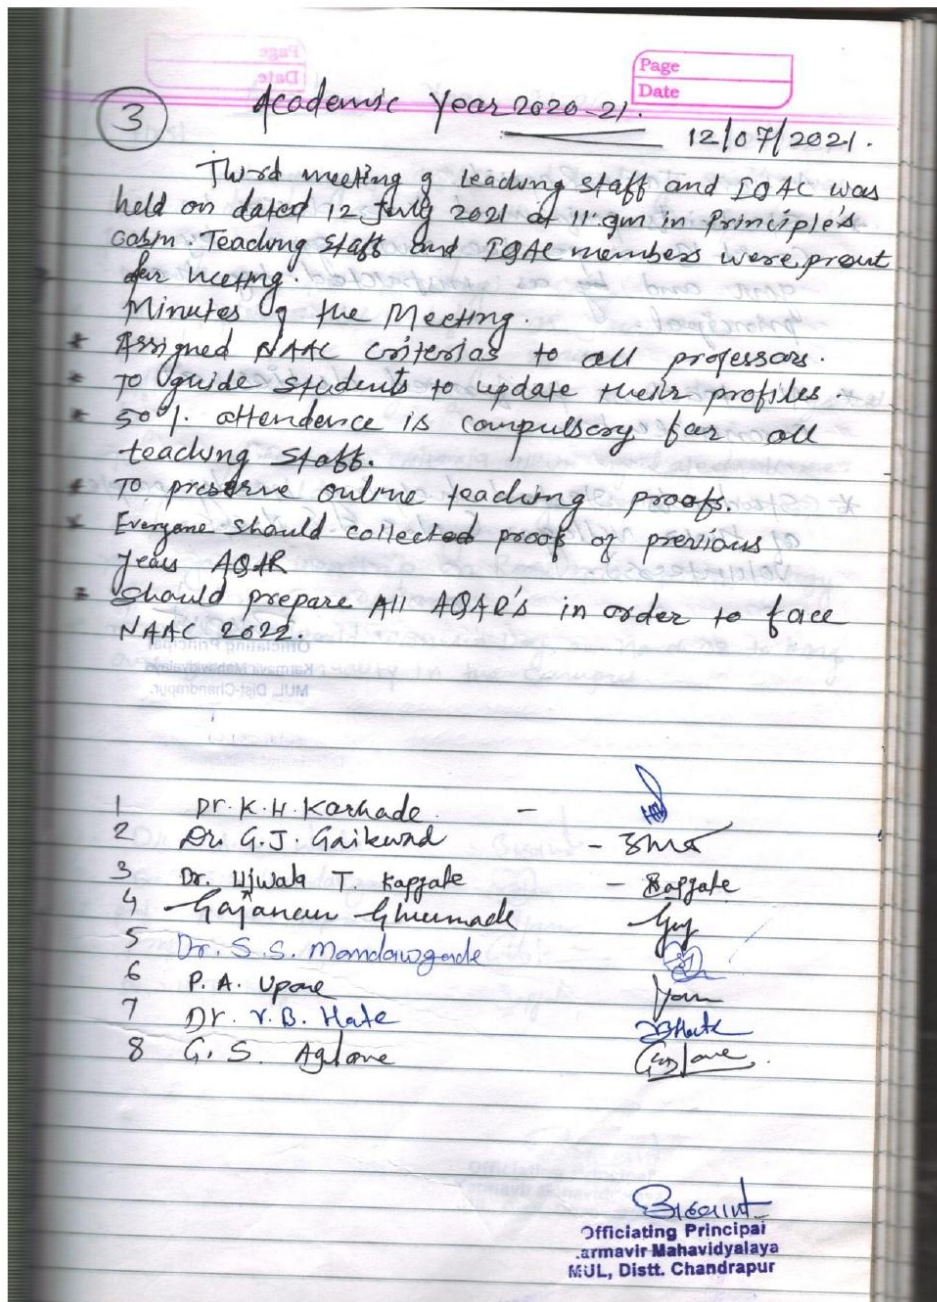 Page
Date
3
Academic Year 2020-21.
12/07/2021.
Third meeting of teaching staff and IQAC was
held on dated 12 July 2021 at 11 am in Principle's
cabin. Teaching staff and IQAC members were
for meeting.
Minutes of the Meeting.
* Assigned NAAC criterias to all professors.
* To guide students to update their profiles.
* 50%. attendence is compulsory for all
teaching staff.
* To preserve online teaching proofs.
* Everyone should collected proof of previous
years AQAR
* Should prepare All AQAR's in order to face
NAAC 2022.
1 Dr. K. H. Karhade -
2 Dr. G. J. Gaikwad -
3 Dr. Ujwala T. Kapgate - Kapgate
4 Gajanan Ghumade
5 Dr. S. S. Mandawgade
6 P. A. Upare
7 Dr. V. B. Hate
8 G. S. Aglave
Officiating Principal
armavir Mahavidyalaya
MUL, Distt. Chandrapur